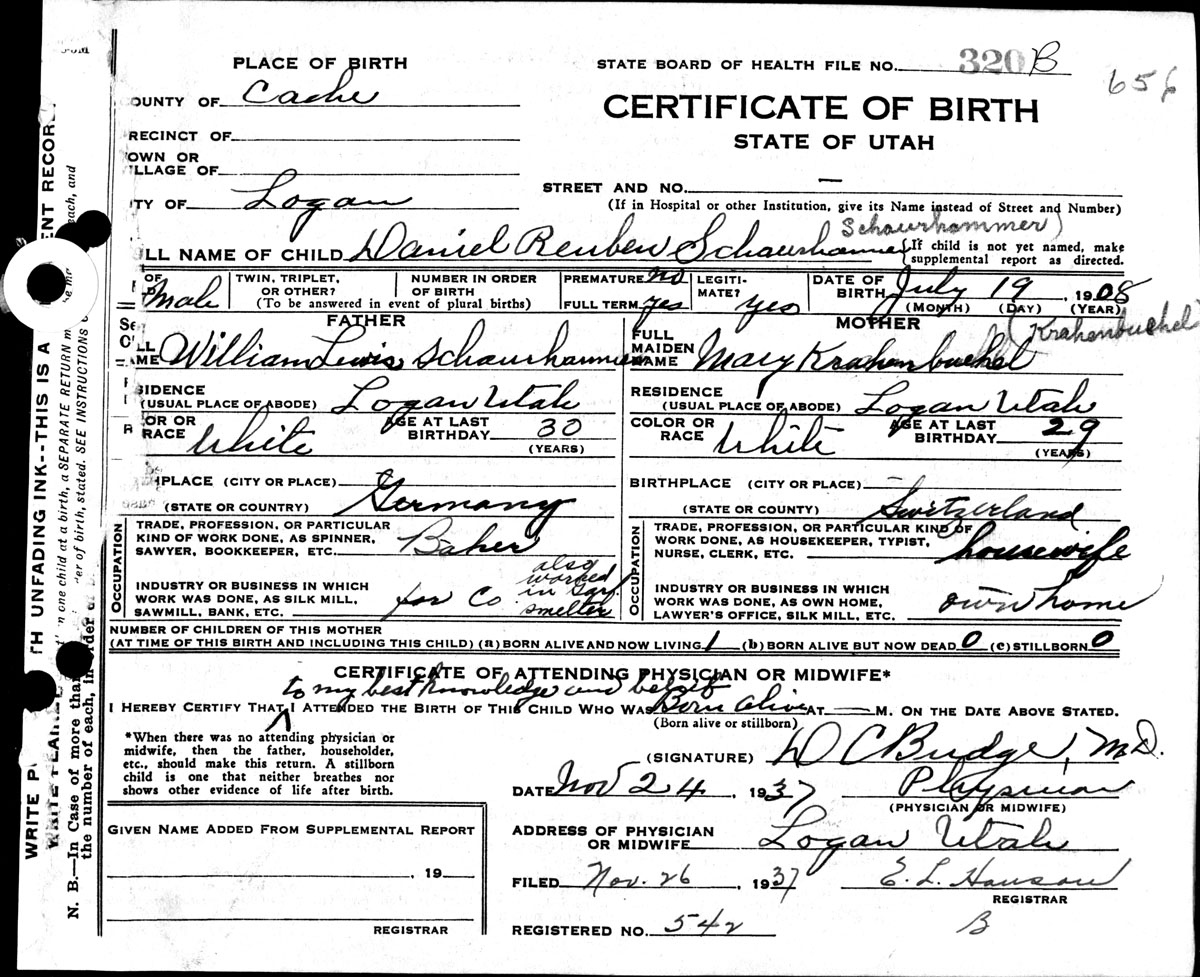 PLACE OF BIRTH
STATE BOARD OF HEALTH FILE NO. 320 B
OUNTY OF Cache
CERTIFICATE OF BIRTH
STATE OF UTAH
RECINCT OF
OWN OR
ILLAGE OF
STREET AND NO. —
TY OF Logan
(If in Hospital or other Institution, give its Name instead of Street and Number)
Schaurhammer)
LL NAME OF CHILD Daniel Reuben Schaurhammer {If child is not yet named, make
supplemental report as directed.
OF Male
TWIN, TRIPLET, OR OTHER?
NUMBER IN ORDER OF BIRTH
(To be answered in event of plural births)
PREMATURE no
FULL TERM yes
LEGITI-MATE? yes
DATE OF BIRTH July 19, 1908
(MONTH) (DAY) (YEAR)
FATHER
MOTHER
(Krahenbuchel)
AME William Lewis Schaurhammer
FULL MAIDEN NAME Mary Krahenbuchel
SIDENCE (USUAL PLACE OF ABODE) Logan Utah
RESIDENCE (USUAL PLACE OF ABODE) Logan Utah
OR OR RACE White AGE AT LAST BIRTHDAY 30 (YEARS)
COLOR OR RACE White AGE AT LAST BIRTHDAY 29 (YEARS)
HPLACE (CITY OR PLACE)
(STATE OR COUNTRY) Germany
BIRTHPLACE (CITY OR PLACE) —
(STATE OR COUNTY) Switzerland
OCCUPATION
TRADE, PROFESSION, OR PARTICULAR
KIND OF WORK DONE, AS SPINNER,
SAWYER, BOOKKEEPER, ETC. Baker
INDUSTRY OR BUSINESS IN WHICH
WORK WAS DONE, AS SILK MILL,
SAWMILL, BANK, ETC. for Co
also
worked
in
smelter
OCCUPATION
TRADE, PROFESSION, OR PARTICULAR KIND OF
WORK DONE, AS HOUSEKEEPER, TYPIST,
NURSE, CLERK, ETC. housewife
INDUSTRY OR BUSINESS IN WHICH
WORK WAS DONE, AS OWN HOME,
LAWYER'S OFFICE, SILK MILL, ETC. own home
NUMBER OF CHILDREN OF THIS MOTHER
(AT TIME OF THIS BIRTH AND INCLUDING THIS CHILD) (a) BORN ALIVE AND NOW LIVING 1 (b) BORN ALIVE BUT NOW DEAD 0 (c) STILLBORN 0
CERTIFICATE OF ATTENDING PHYSICIAN OR MIDWIFE*
to my best knowledge and belief
I HEREBY CERTIFY THAT I ATTENDED THE BIRTH OF THIS CHILD WHO WAS Born alive AT — M. ON THE DATE ABOVE STATED.
(Born alive or stillborn)
*When there was no attending physician or
midwife, then the father, householder,
etc., should make this return. A stillborn
child is one that neither breathes nor
shows other evidence of life after birth.
(SIGNATURE) D C Budge, M.D.
DATE Nov 24, 1937 Physician
(PHYSICIAN OR MIDWIFE)
GIVEN NAME ADDED FROM SUPPLEMENTAL REPORT
, 19
REGISTRAR
ADDRESS OF PHYSICIAN
OR MIDWIFE Logan Utah
FILED Nov. 26, 1937 E. L. Hanson
REGISTRAR
REGISTERED NO. 542 B
N. B.—In Case of more than one child at a birth, a SEPARATE RETURN
the number of each, in order of birth, stated. SEE INSTRUCTIONS